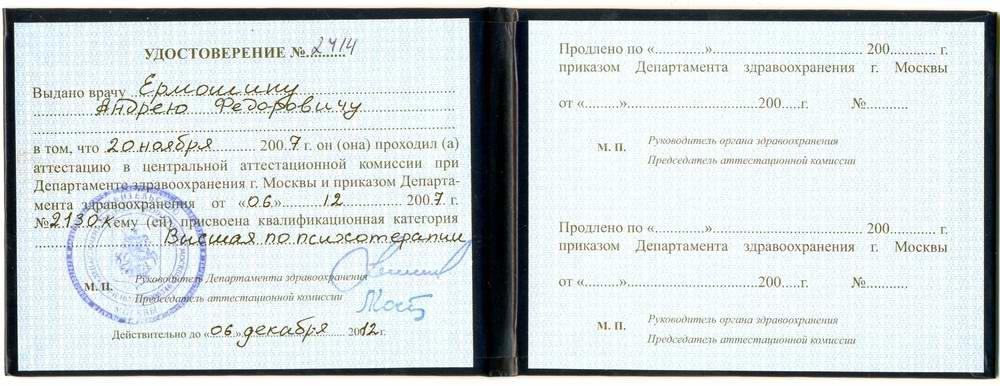 УДОСТОВЕРЕНИЕ №2414
Выдано врачу Ермошину
Андрею Федоровичу
в том, что 20 ноября 2007 г. он (она) проходил (а)
аттестацию в центральной аттестационной комиссии при
Департаменте здравоохранения г. Москвы и приказом Департа-
мента здравоохранения от «06» 12 2007 г.
№2130-к ему (ей) присвоена квалификационная категория
Высшая по психотерапии
Руководитель Департамента здравоохранения
М. П.
Председатель аттестационной комиссии
Действительно до «06» декабря 2012 г.
Продлено по «............».......................................... 200............ г.
приказом Департамента здравоохранения г. Москвы
от «.........»...................................200.....г. №............
Руководитель органа здравоохранения
М. П.
Председатель аттестационной комиссии
Продлено по «............».......................................... 200............ г.
приказом Департамента здравоохранения г. Москвы
от «.........»...................................200.....г. №............
Руководитель органа здравоохранения
М. П.
Председатель аттестационной комиссии